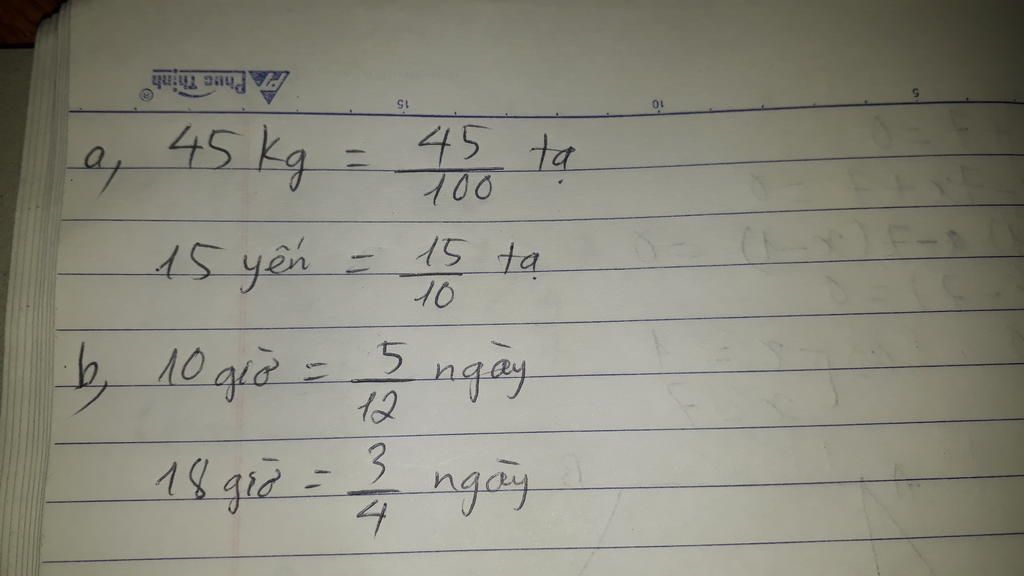 Phuc Thịnh ®
15 10 5
a, 45 kg = 45/100 tạ
15 yến = 15/10 tạ
b, 10 giờ = 5/12 ngày
18 giờ = 3/4 ngày